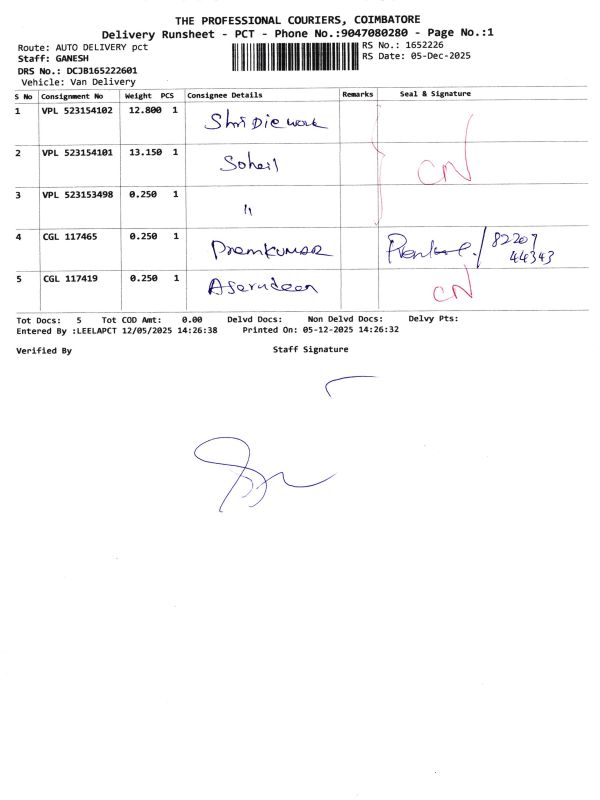 THE PROFESSIONAL COURIERS, COIMBATORE
Delivery Runsheet - PCT - Phone No.:9047080280 - Page No.:1
Route: AUTO DELIVERY pct RS No.: 1652226
Staff: GANESH RS Date: 05-Dec-2025
DRS No.: DCJB165222601
Vehicle: Van Delivery
S No Consignment No Weight PCS Consignee Details Remarks Seal & Signature
1 VPL 523154102 12.800 1 Shri Die work
2 VPL 523154101 13.150 1 Soheil CN
3 VPL 523153498 0.250 1 "
4 CGL 117465 0.250 1 Premkumar 82207
44343
5 CGL 117419 0.250 1 CN
Tot Docs: 5 Tot COD Amt: 0.00 Delvd Docs: Non Delvd Docs: Delvy Pts:
Entered By :LEELAPCT 12/05/2025 14:26:38 Printed On: 05-12-2025 14:26:32
Verified By Staff Signature